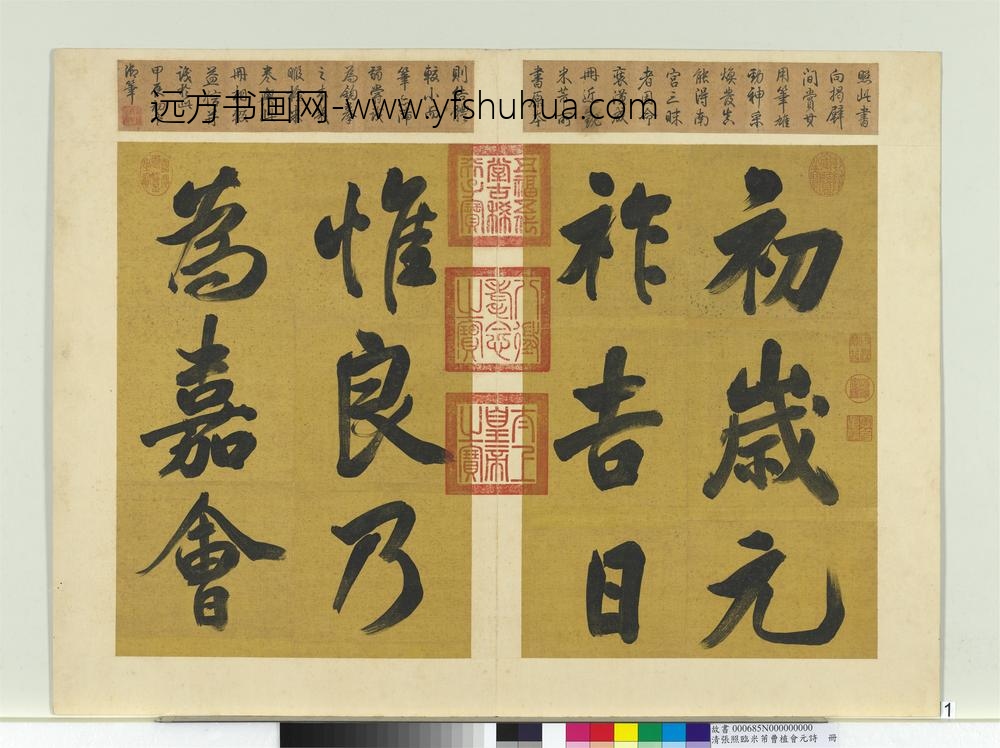 照此書
向揭壁
間賞其
用筆雄
勁神采
煥發真
能得南
宮三昧
者因命
裝潢成
冊近
米芾
書
則
較小而
筆
為
之
甲辰
御筆
远方书画网-www.yfshuhua.com
初歲元
祚吉日
五福五代
堂古稀
天子寶
八徵
耄念
之寶
太上
皇帝
之寶
惟良乃
為嘉會
1
故書 000685N000000000
清張照臨米芾曹植會元詩 冊